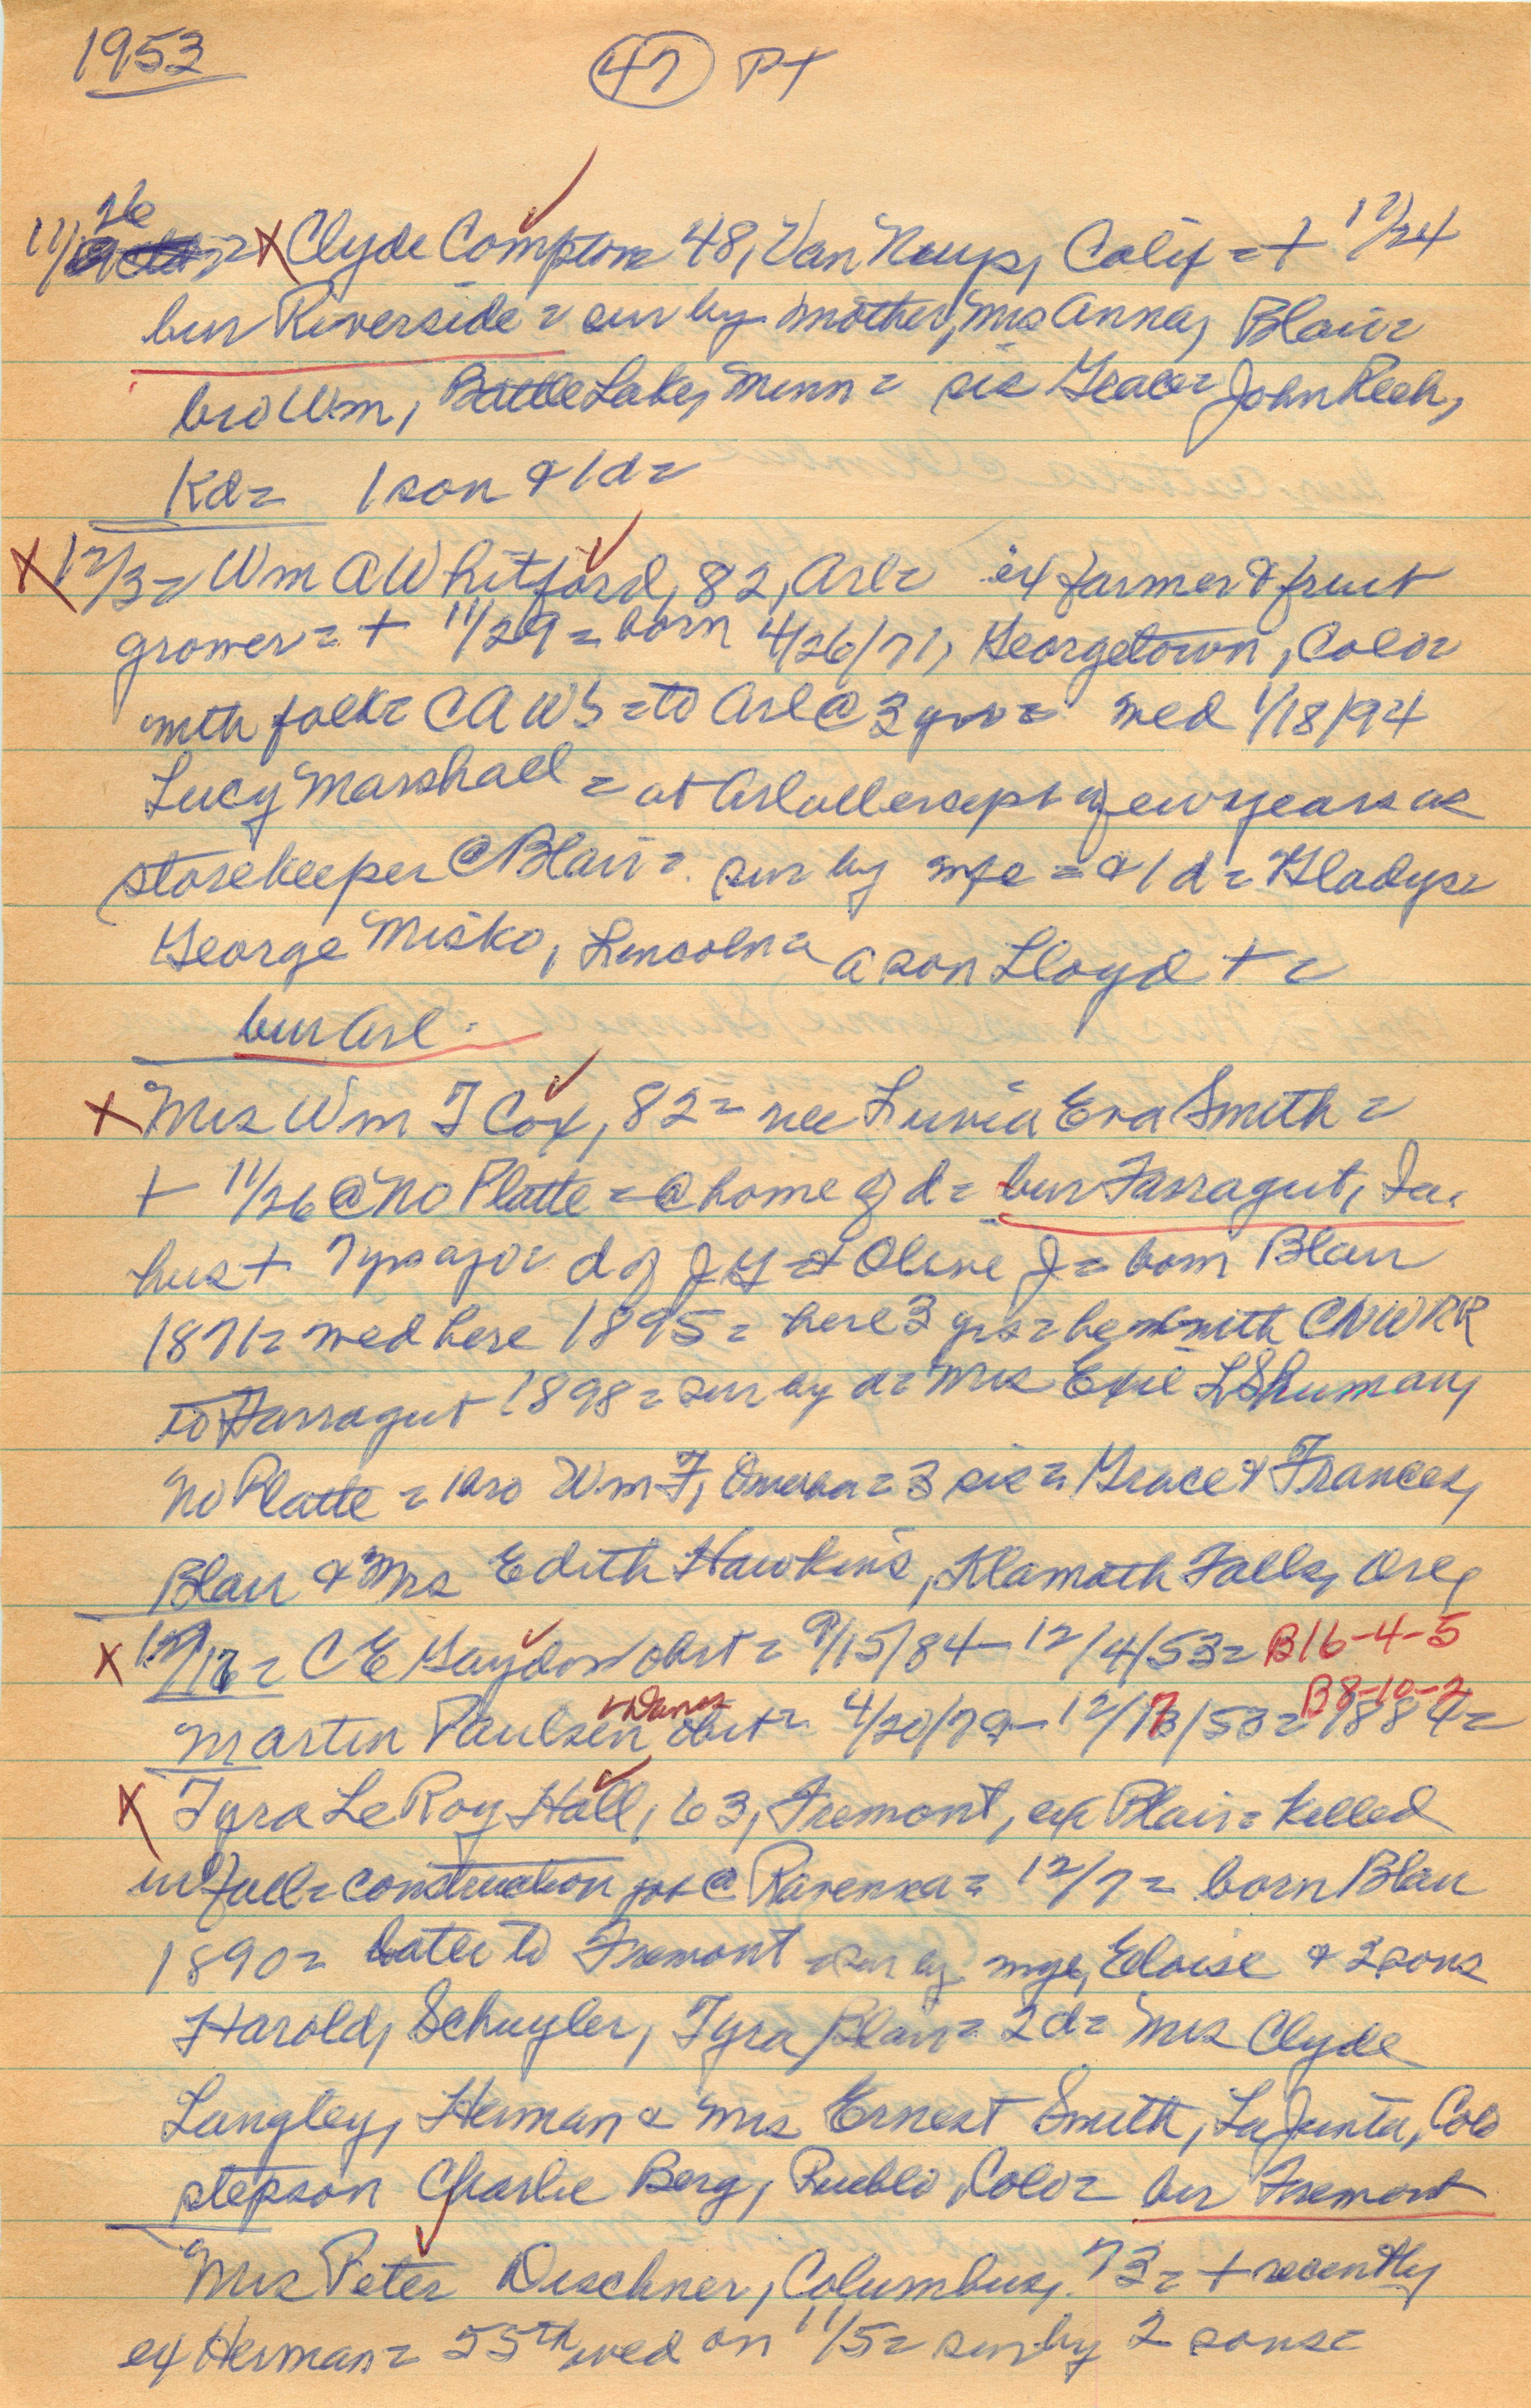 1953 (47) PT
11/26 = X Clyde Compton 48, Van Nuys, Calif = + 11/24
bur Riverside = sur by mother, Mrs Anna, Blair =
bro Wm, Battle Lake, Minn = sis Grace = John
Kd = 1 son & 1 d =
X 12/3 = Wm A Whitford, 82, Arl = ex farmer & fruit
grower = + 11/29 = born 4/26/71, Georgetown, Colo =
with folk = C A W's = to Arl @ 3 yrs = wed 1/18/94
Lucy Marshall = at Arl all except a few years as
storekeeper @ Blair = sur by wife = & 1 d = Gladys =
George Misko, Lincoln = a son Lloyd + =
bur Arl =
X Mrs Wm T Cox, 82 = nee Luvia Eva Smith =
+ 11/26 @ No Platte = @ home of d = bur Farragut, Ia.
hus + 7 yrs ago = d of J Y & Olive J = born Blair
1871 = wed here 1895 = here 3 yrs = he with CNWRR
to Farragut 1898 = sur by d = Mrs L Shuman,
No Platte = 1 bro Wm F, Omaha = 3 sis = Grace & Frances,
Blair & Mrs Edith Hawkins, Klamath Falls, Ore,
X 12/17 = C E Gaydon obit = 9/15/84 - 12/4/53 = B16-4-5
Martin Paulsen obit = 4/20/79 - 12/7/53 = 1884 = B8-10-2
X Tyra LeRoy Hall, 63, Fremont, ex Blair = killed
in fall = construction job @ Ravenna = 12/7 = born Blair
1890 = later to Fremont = sur by wife, Eloise & 2 sons
Harold, Schuyler, Tyra, Blair = 2 d = Mrs Clyde
Langley, Herman & Mrs Ernest Smith, La Junta, Colo
stepson Charlie Berg, Pueblo, Colo = bur Fremont
Mrs Peter Deschner, Columbus, 73 = + recently
ex Herman = 55th wed on 11/5 = sur by 2 sons =